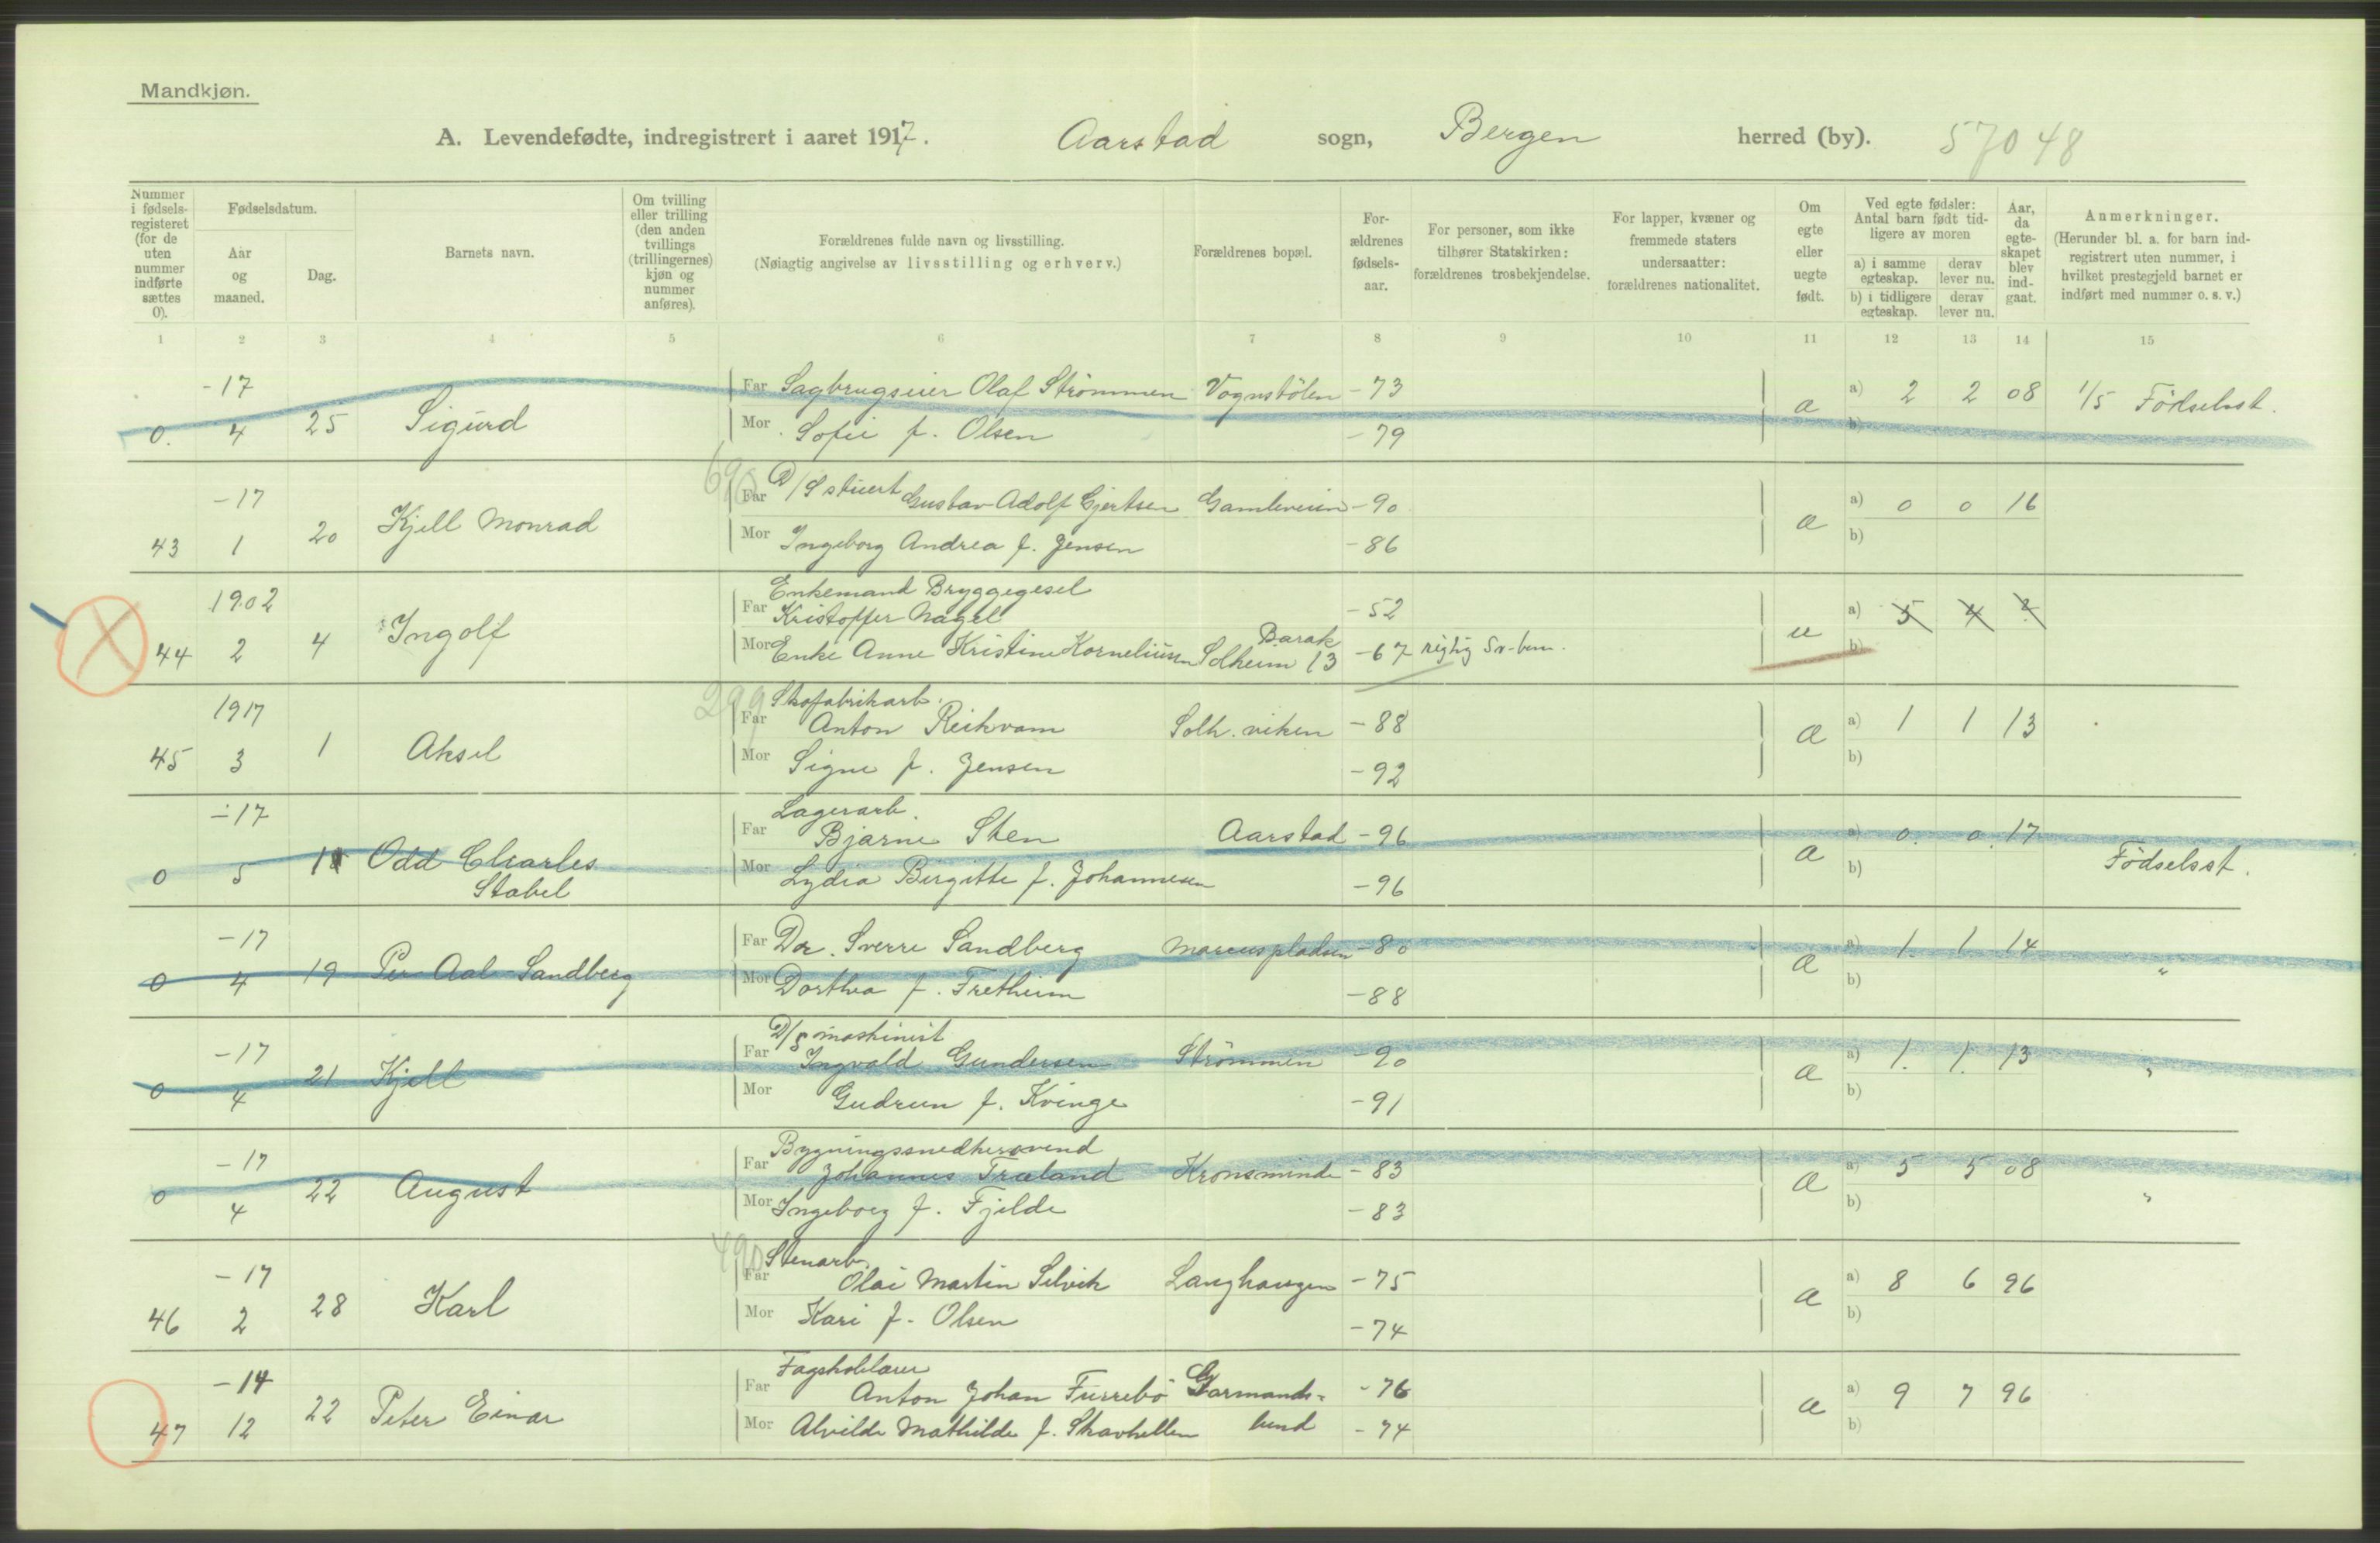 Mandkjøn.
A. Levendefødte, indregistrert i aaret 1917. Aarstad sogn, Bergen herred (by). 57048
Nummer i fødselsregisteret (for de uten nummer indførte sættes 0).
Fødselsdatum.
Aar og maaned.
Dag.
Barnets navn.
Om tvilling eller trilling (den anden tvillings (trillingernes) kjøn og nummer anføres).
Forældrenes fulde navn og livsstilling.
(Nøiagtig angivelse av livsstilling og erhverv.)
Forældrenes bopæl.
Forældrenes fødselsaar.
For personer, som ikke tilhører Statskirken: forældrenes trosbekjendelse.
For lapper, kvæner og fremmede staters undersaatter: forældrenes nationalitet.
Om egte eller uegte født.
Ved egte fødsler: Antal barn født tidligere av moren
a) i samme egteskap. derav lever nu.
b) i tidligere egteskap. derav lever nu.
Aar, da egteskapet blev indgaat.
Anmerkninger.
(Herunder bl. a. for barn indregistrert uten nummer, i hvilket prestegjeld barnet er indført med nummer o. s. v.)
1 2 3 4 5 6 7 8 9 10 11 12 13 14 15
-17 Far Sagbrugseier Olaf Strømmen Vognstölen -73 a) 2 2 08 1/5 Födselsst.
0. 4 25 Sigurd Mor Sofie f. Olsen -79 a b)
-17 Far D/S stuert Gustav Adolf Gjertsen Gamleveien -90 a) 0 0 16
43 1 20 Kjell Monrad Mor Ingeborg Andrea f. Jensen -86 a b)
1902 Far Enkemand Bryggegesel
Kristoffer Nagel -52 a) 5 4 2
44 2 4 Ingolf Mor Enke Anne Kristine Korneliusen Barak
Solheim 13 -67 rigtig u b)
1917 299 Far Skofabrikarb.
Anton Reikvam Solh.viken -88 a) 1 1 13
45 3 1 Aksel Mor Signe f. Jensen -92 a b)
-17 Far Lagerarb.
Bjarne Sten Aarstad -96 a) 0. 0. 17
0 5 11 Odd Charles
Stabel Mor Lydia Birgitte f. Johannesen -96 a b) Födselsst.
-17 Far Dr. Sverre Sandberg Marcuspladsen -80 a) 1. 1 14
0 4 19 Per Aal Sandberg Mor Dorthea f. Fretheim -88 a b) "
-17 Far D/S maskinist
Ingvald Gundersen Strömmen -90 a) 1. 1. 13
0 4 21 Kjell Mor Gudrun f. Kvinge -91 a b) "
-17 Far Bygningssnedkersvend
Johannes Træland Kronsminde -83 a) 5 5 08
0 4 22 August Mor Ingeborg f. Fjelde -83 a b) "
-17 490 Far Stenarb.
Olai Martin Selvik Langhaugen -75 a) 8 6 96
46 2 28 Karl Mor Kari f. Olsen -74 a b)
-14 Far Fagskolelærer
Anton Johan Furrebö Garmands- -76 a) 9 7 96
47 12 22 Peter Einar Mor Alvilde Mathilde f. Skavhellen lund -74 a b)